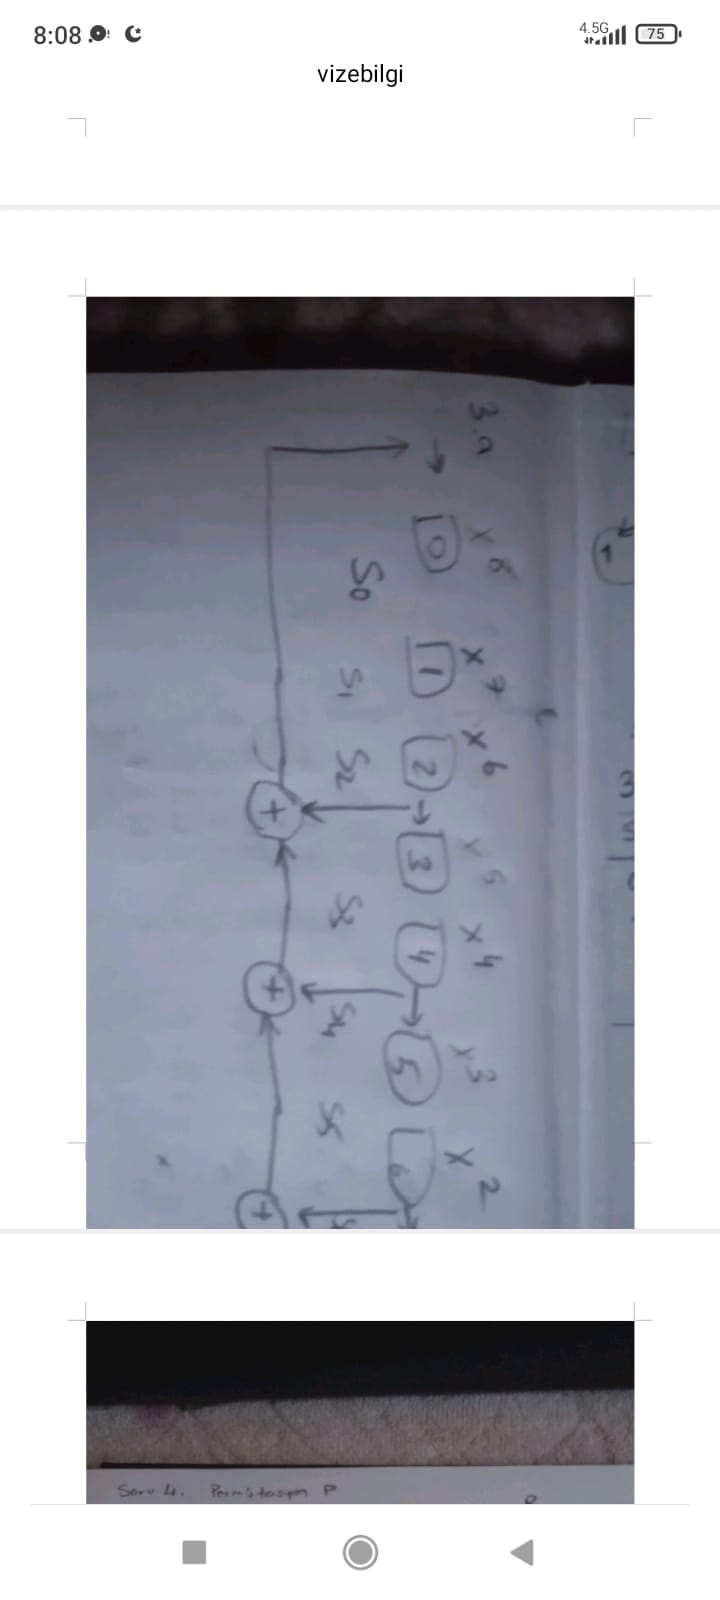 8:08
4.5G
75
vizebilgi
3.a
x⁸ x⁷ x⁶ x⁵ x⁴ x³ x²
0 1 2 3 4 5 6
S0 S1 S2 S3 S4 S5
+ + +
1
3
Soru 4. Permütasyon P